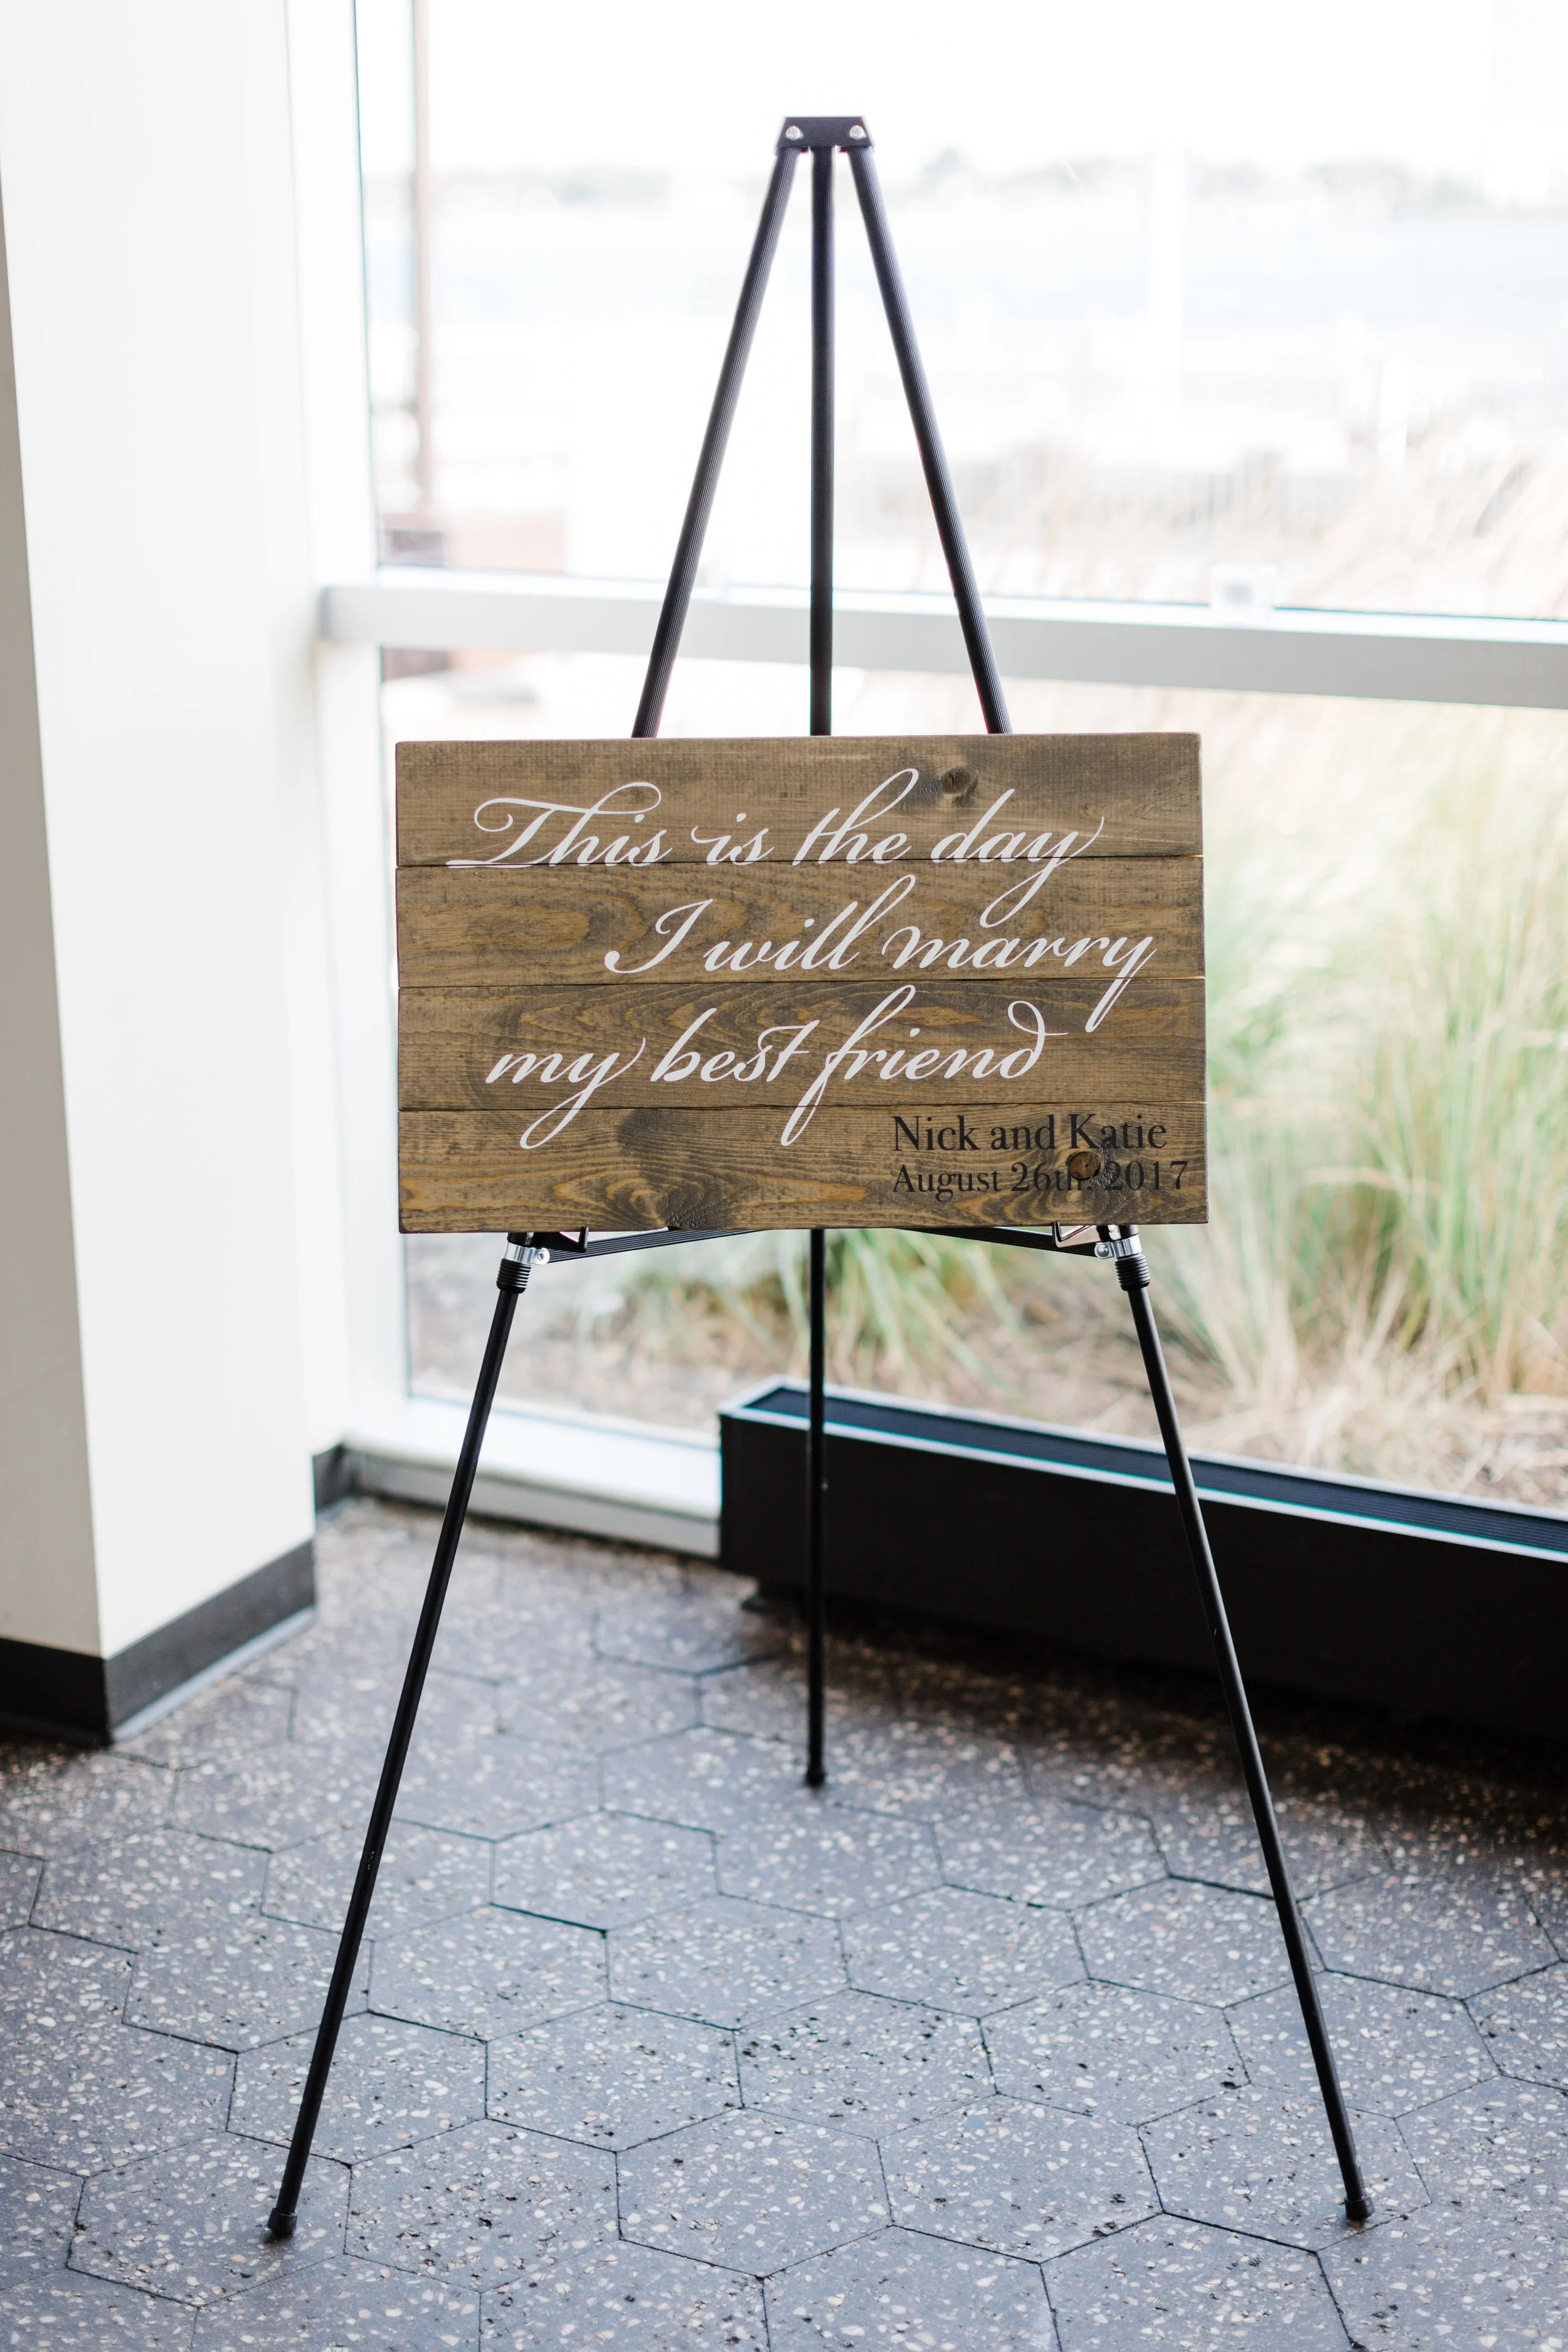 This is the day
I will marry
my best friend
Nick and Katie
August 26th, 2017